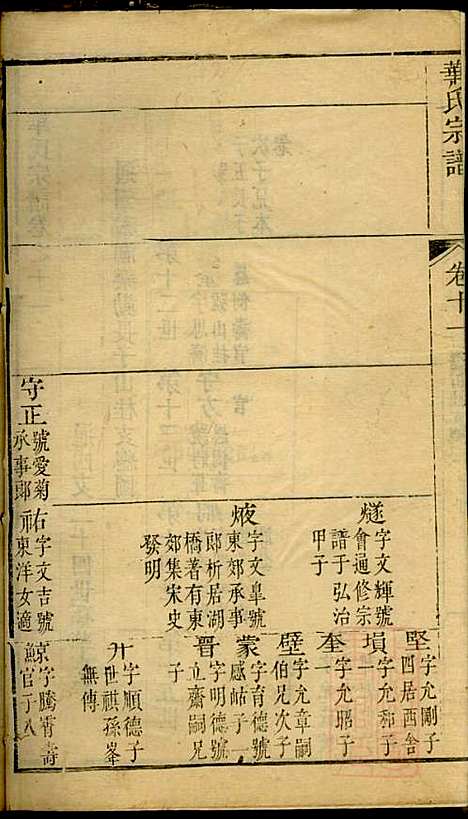 華氏宗譜
卷十一
燧
字文輝號
會通修宗
譜于弘治
甲子
堅
字允剛子
四居西舍
塤
字允和子
一
奎
字允昭子
一
璧
字允章嗣
伯兄次子
字文皐號
東郊承事
郎析居湖
橋著有東
郊集宋史
發明
蒙
字育德號
感岵子一
晉
字明德號
立齋嗣兄
子
升
字順德子
世祺孫峯
無傳
守正
號愛菊
承事郎
祐
字文吉號
東洋女適
京
字騰霄壽
官丁八